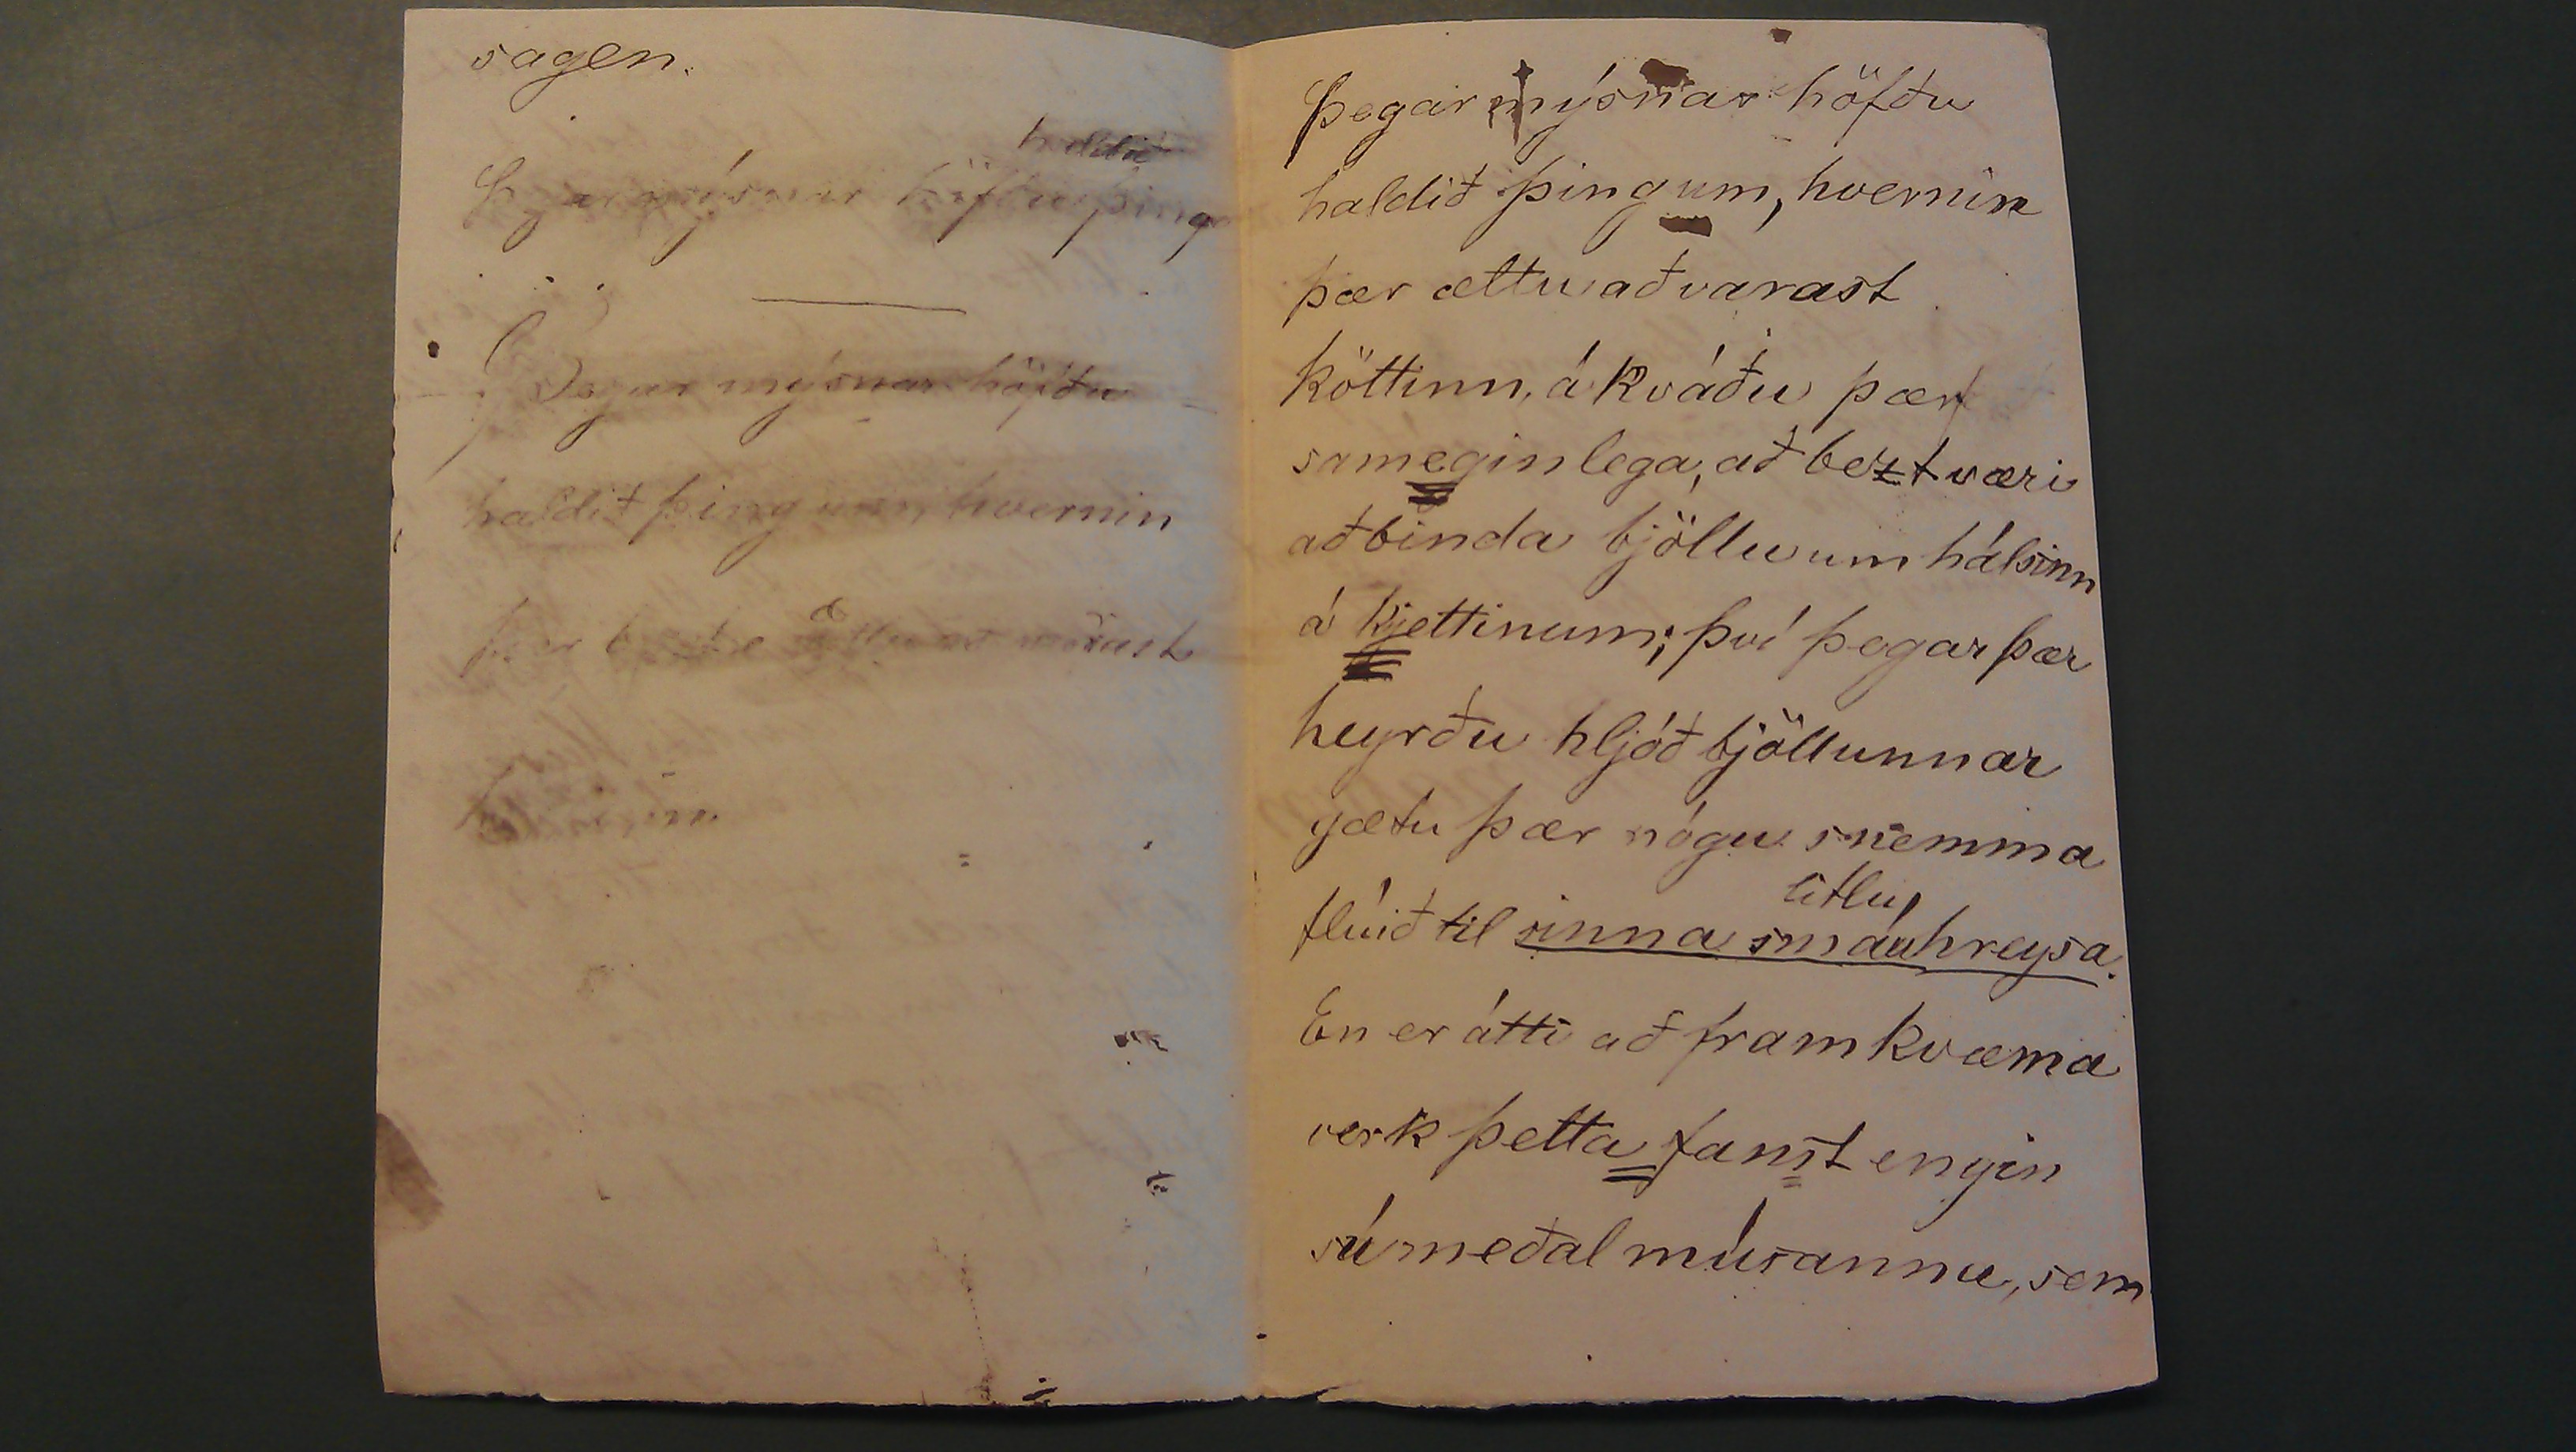 sagen.
haldið
Þegar mýsnar höfðu þing
Þegar mýsnar höfðu
haldið þing um, hvernin
þær ættu að varast
Þegar mýsnar höfðu
haldið þing um, hvernin
þær ættu að varast
köttinn, ákváðu þær
sameginlega, að bezt væri
að binda bjöllu um hálsinn
á kjettinum; því þegar þær
heyrðu hljóð bjöllunnar
gætu þær nógu snemma
litlu
flúið til sinna smáuhreysa.
En er átti að framkvæma
verk þetta fanst engin
sú meðal músanna, sem